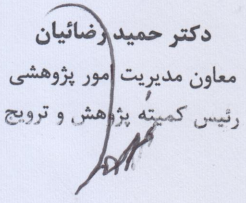 دکتر حمید رضائیان
معاون مدیریت امور پژوهشی
رئیس کمیته پژوهش و ترویج